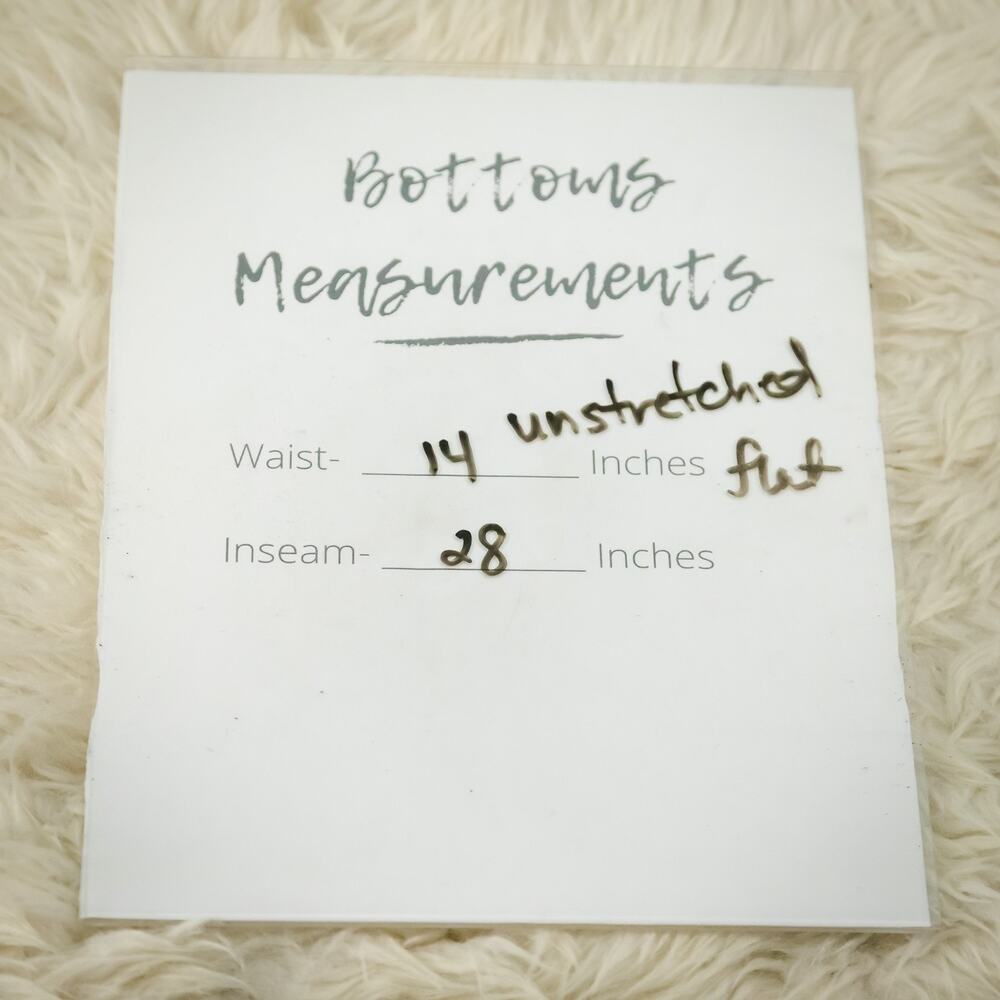 Bottoms
Measurements
unstretched
Waist- 14 Inches flat
Inseam- 28 Inches